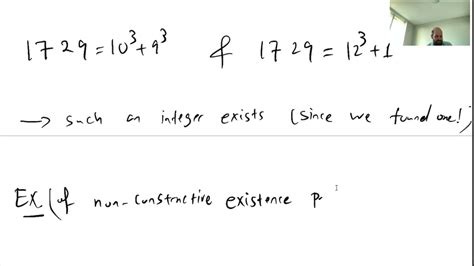 1729 = 10³ + 9³ & 1729 = 12³ + 1
→ such an integer exists (since we found one!)
Ex (of non-constructive existence p